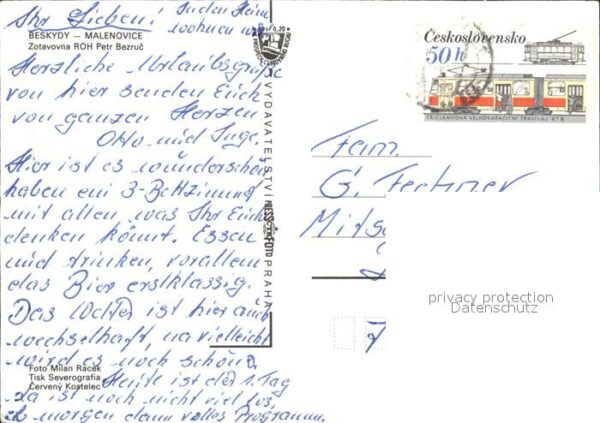 Ihr Lieben! In den Heim
wohnen wir
BESKYDY — MALENOVICE
Zotavovna ROH Petr Bezruč
Herzliche Urlaubsgrüße
von hier senden Euch
von ganzen Herzen
Otto und Inge.
Hier ist es wunderschön
haben ein 3-Bettzimmer
mit allen was Ihr Euch
denken könnt. Essen
und trinken, vorallem
das Bier erstklassig.
Das Wetter ist hier auch
wechselhaft, na vielleicht
wird es noch schön.
Foto Milan Racek
Tisk Severografia
Červený Kostelec
Heute ist der 1. Tag
da ist noch nicht viel los,
ab morgen dann volles Programm.
0,20
VYDAVATELSTVÍ
PRESSFOTO
PRAHA
Československo
50 h
TŘÍČLÁNKOVÁ VELKOKAPACITNÍ TRAMVAJ KT 8
Fam.
G. Fechner
privacy protection
Datenschutz